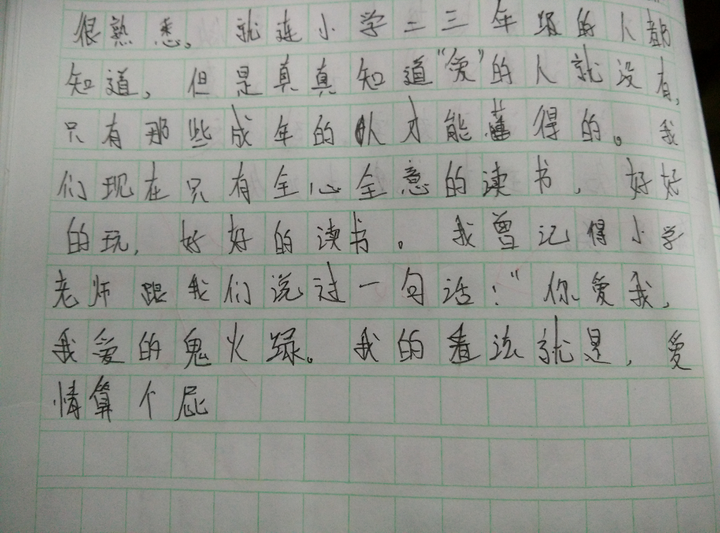 很熟悉。就连小学二三年级的人都
知道，但是真真知道“爱”的人就没有，
只有那些成年的人才能懂得的。我
们现在只有全心全意的读书，好好
的玩，好好的读书。我曾记得小学
老师跟我们说过一句话：“你爱我，
我爱的鬼火绿。我的看法就是，爱
情算个屁